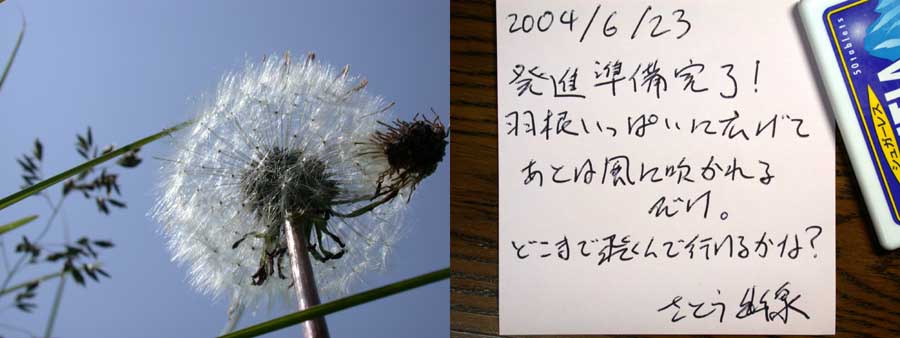 2004/6/23
発進準備完了!
羽根いっぱいに広げて
あとは風に吹かれる
だけ。
どこまで飛んで行けるかな?
さとう
シュガーレス
50tablets